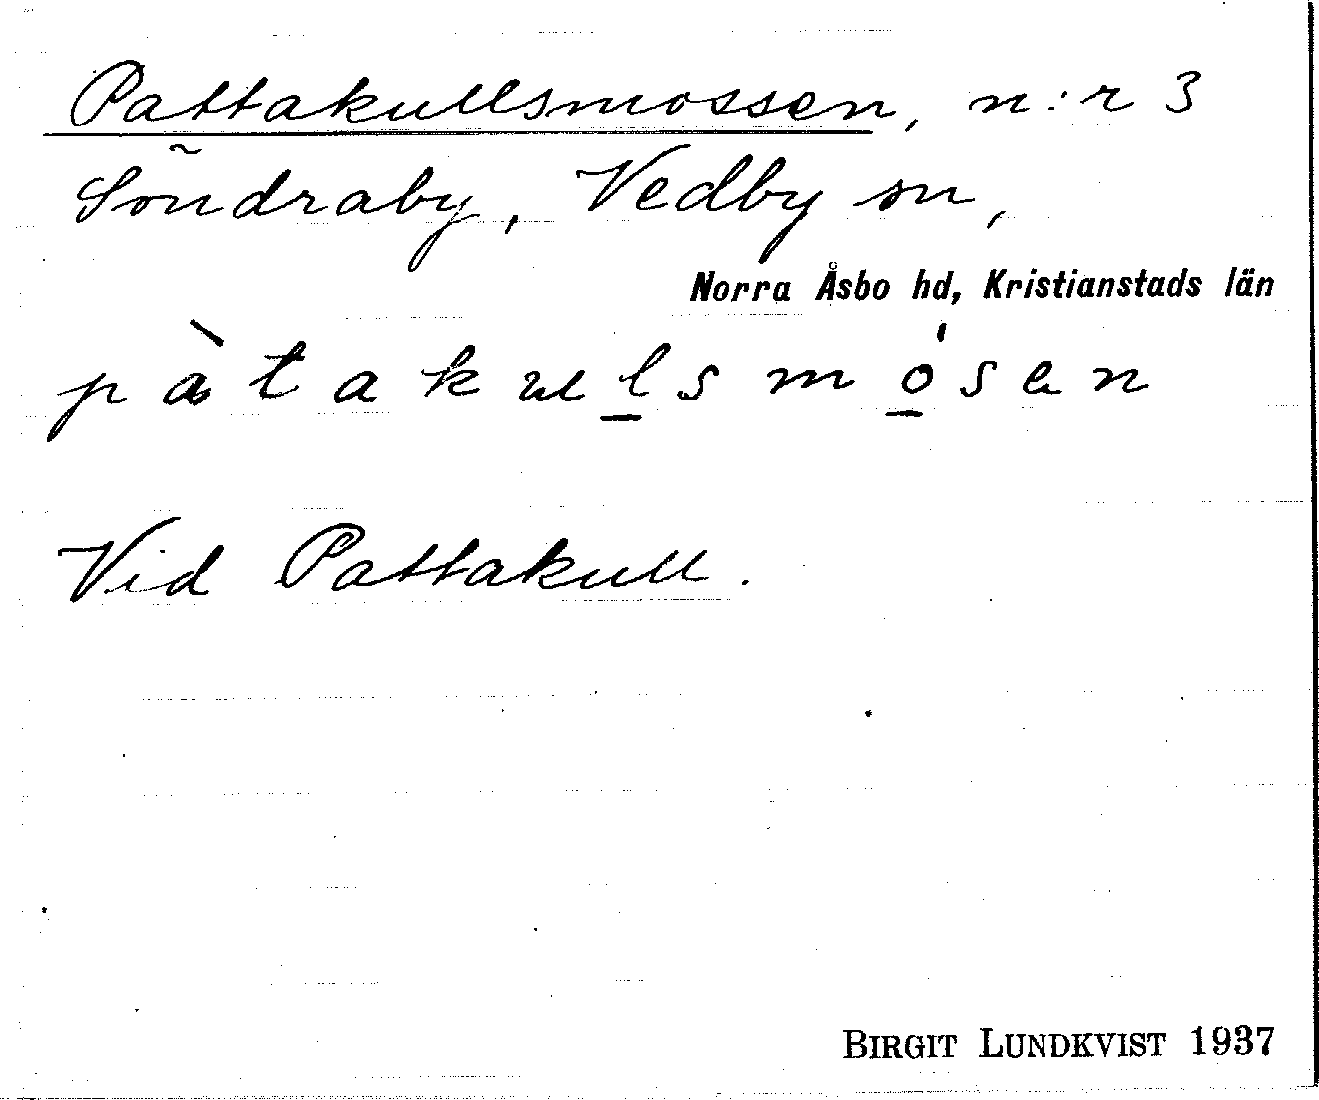 Pattakullsmossen, n:r 3
Söndraby, Vedby sn,
Norra Åsbo hd, Kristianstads län
pàtakulsmósen
Vid Pattakull.
BIRGIT LUNDKVIST 1937